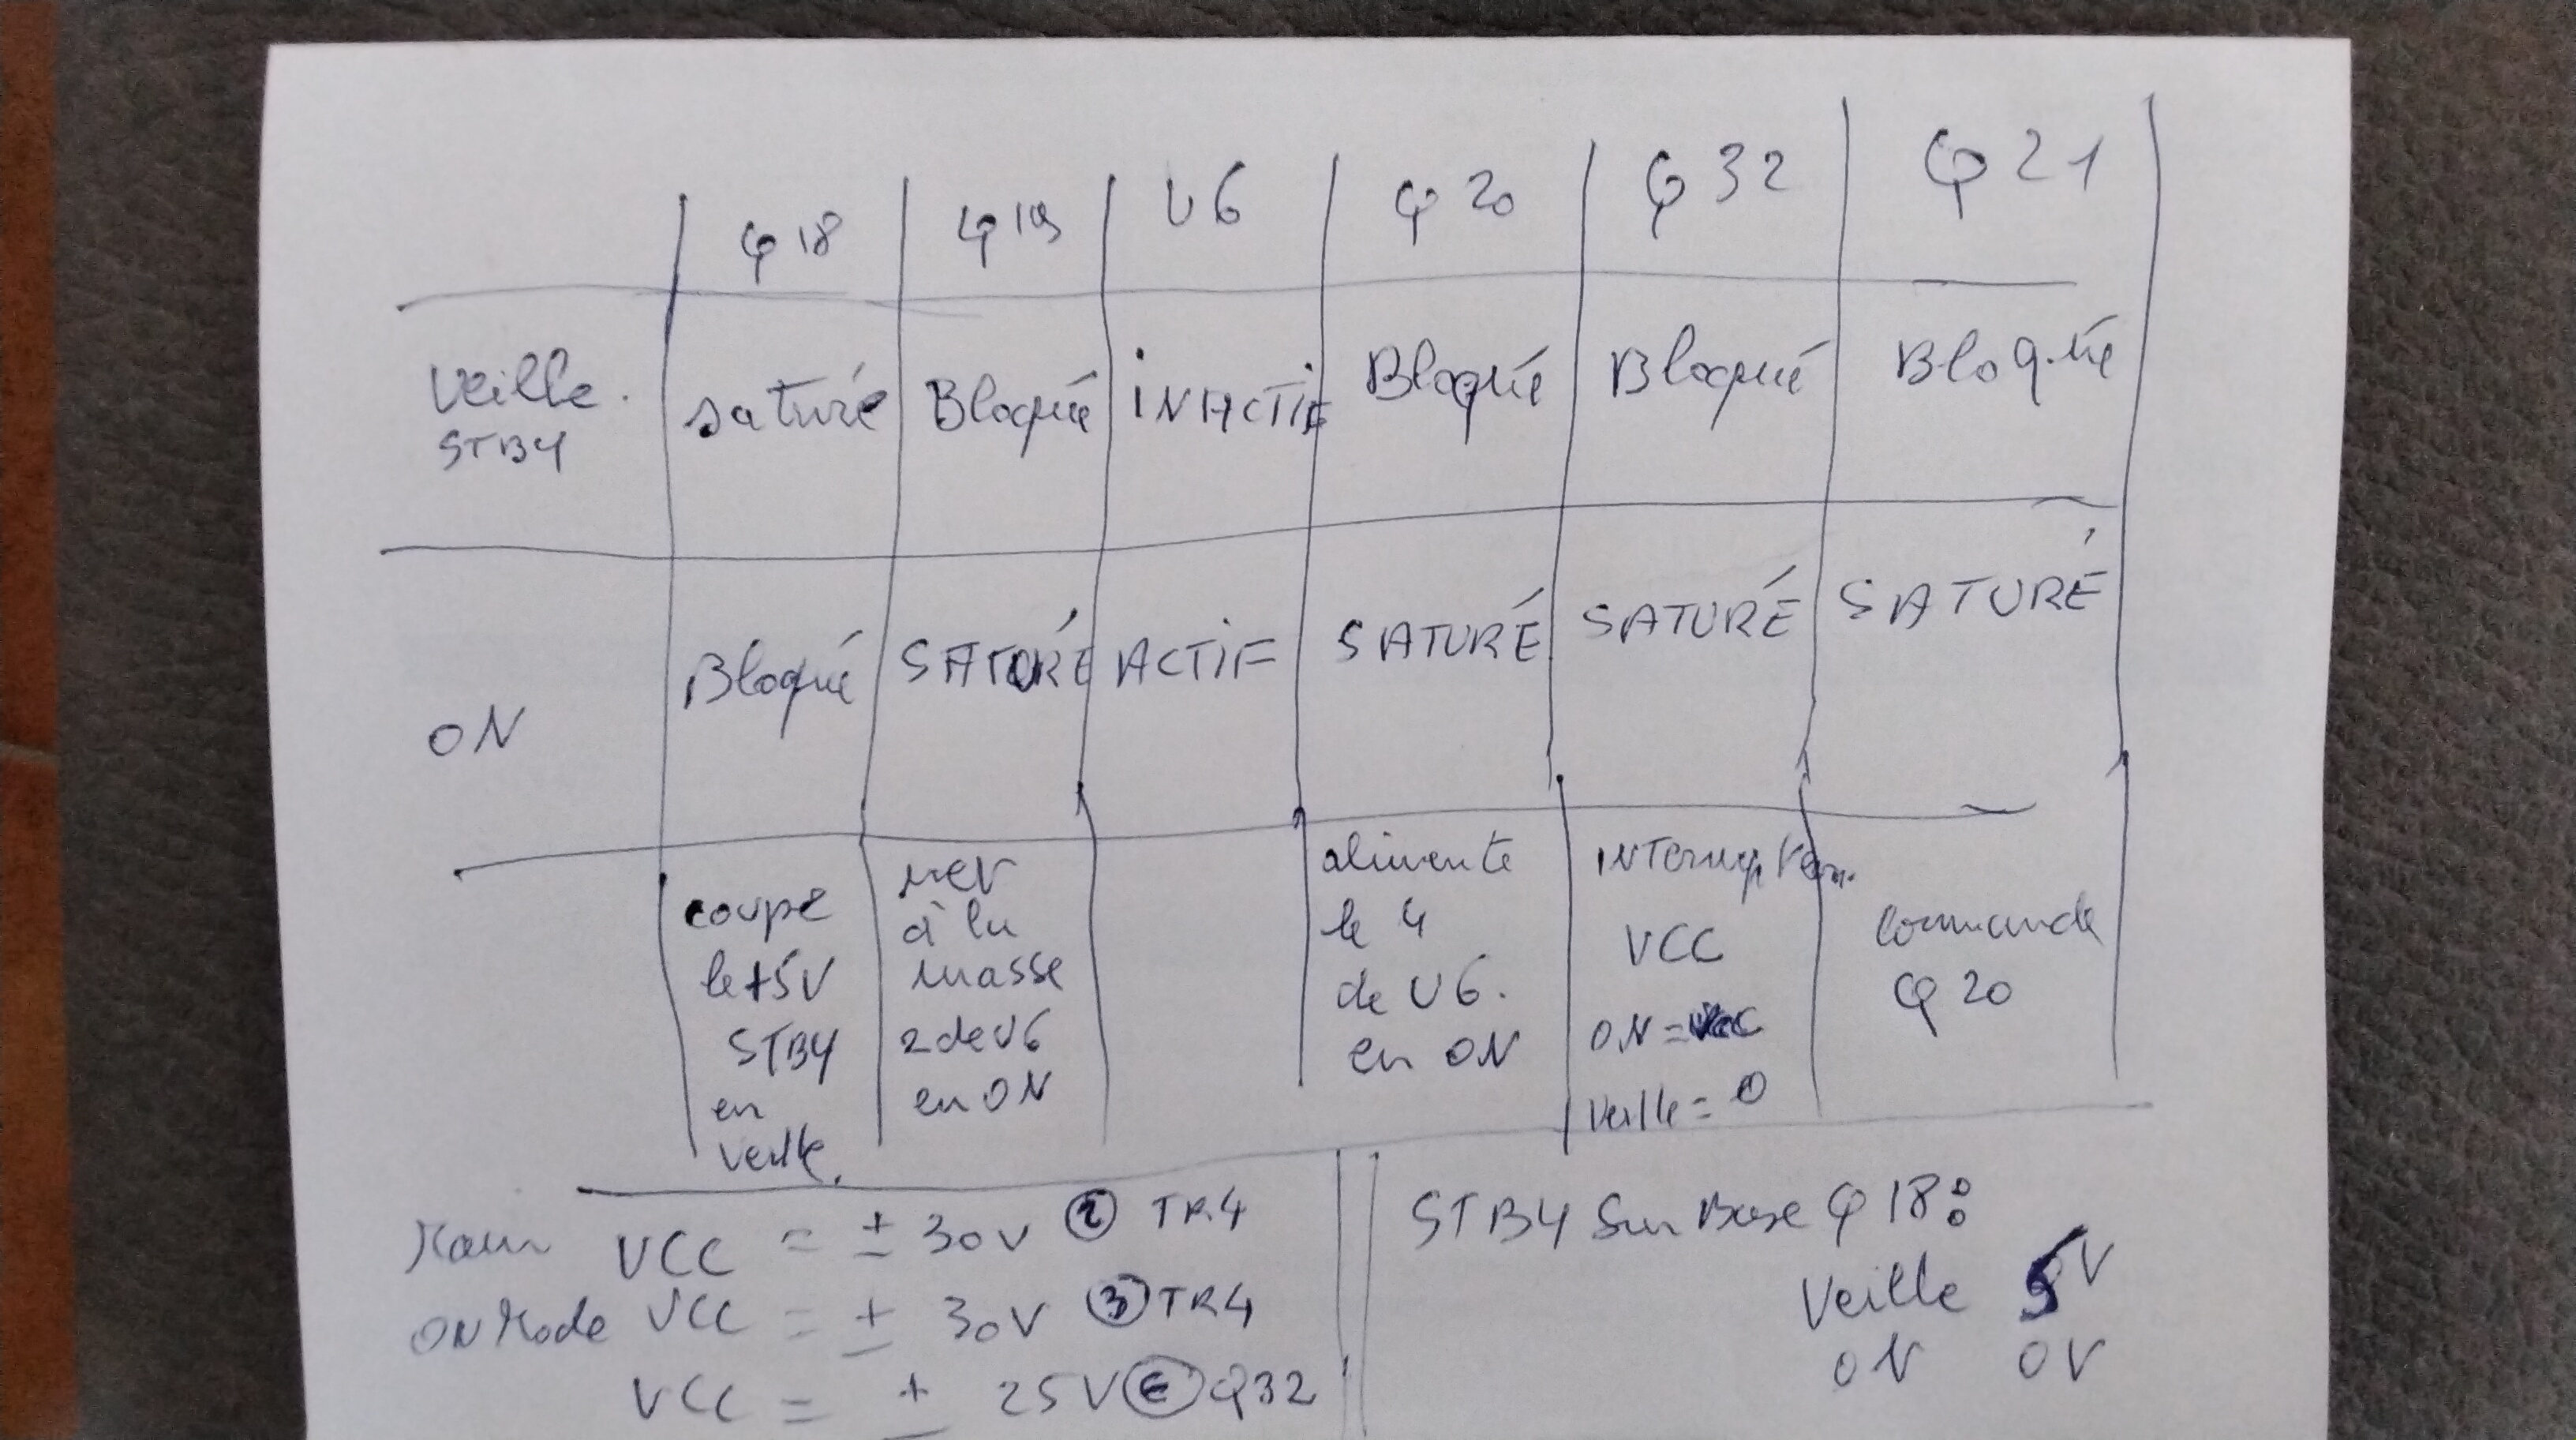 Q18 Q19 U6 Q20 Q32 Q21
Veille. saturé Bloqué INACTIF Bloqué Bloqué Bloqué
STBY
ON Bloqué SATURÉ ACTIF SATURÉ SATURÉ SATURÉ
coupe
le +5V
STBY
en
veille.
met
à la
masse
2 de U6
en ON
alimente
le 4
de U6.
en ON
INTerrupteur.
VCC
ON = VCC
Veille = 0
Commande
Q20
VCC = ± 30V ② TR4
ON Mode VCC = ± 30V ③ TR4
VCC = ± 25V Ⓔ Q32
STBY Sur Base Q18:
Veille 5V
ON 0V